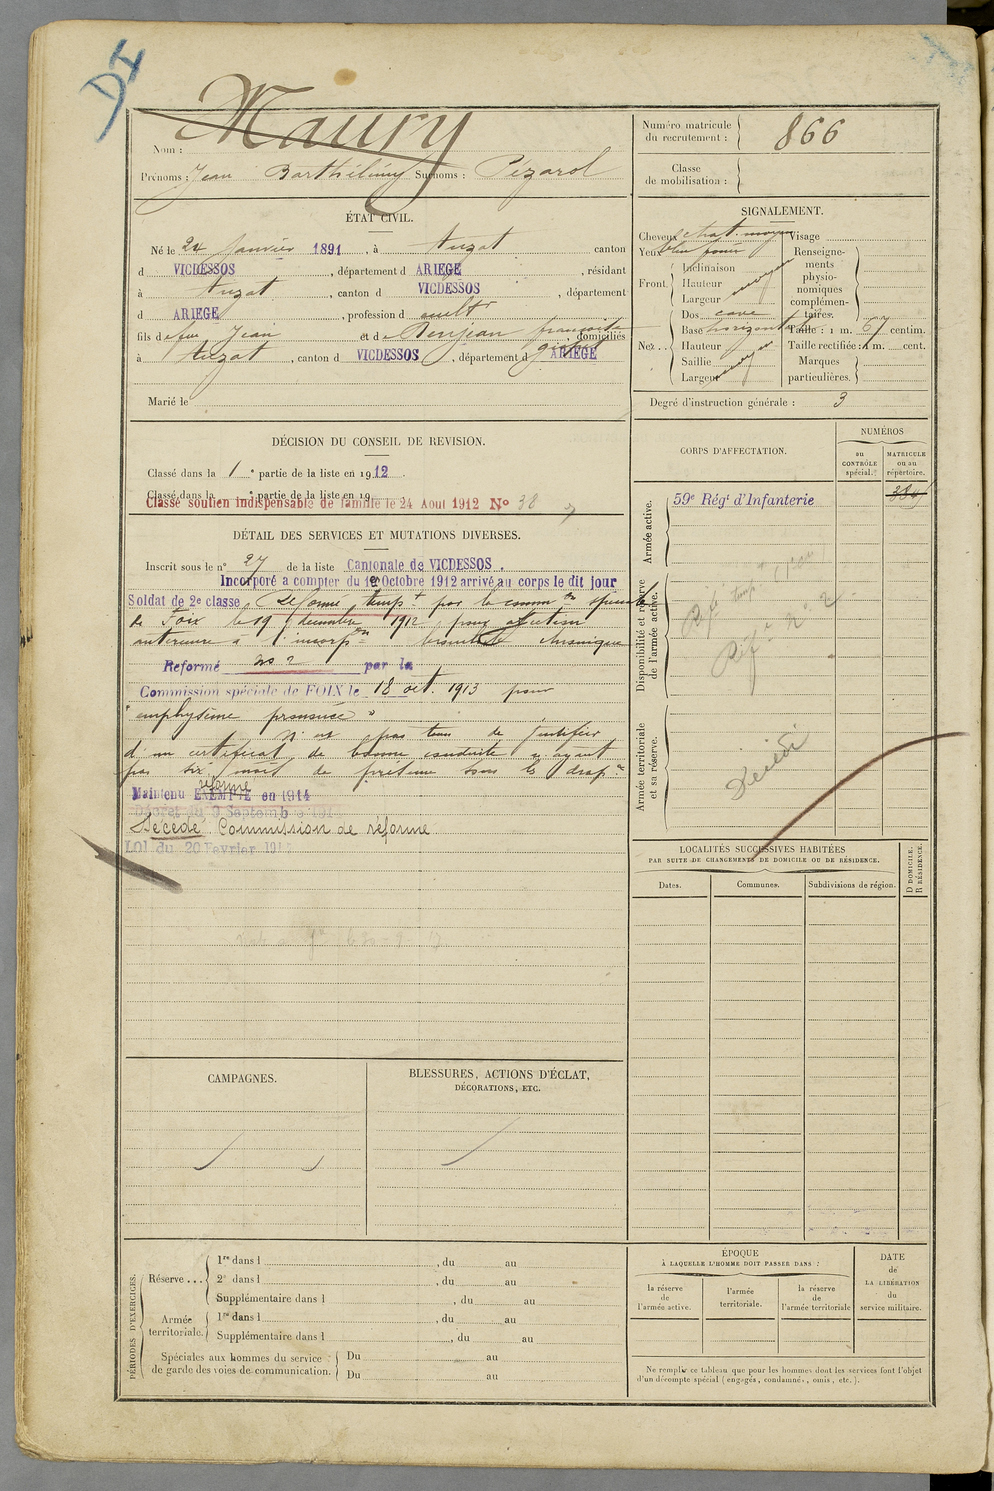 DI
Nom : Maury
Prénoms : Jean Barthélémy Surnoms : Pézarol
ÉTAT CIVIL.
Né le 24 Janvier 1891, à Auzat canton
d VICDESSOS, département d ARIEGE, résidant
à Auzat, canton d VICDESSOS, département
d ARIEGE, profession d cultr
fils de feu Jean et de Denjean françoise, domiciliés
à Auzat, canton d VICDESSOS, département d ARIEGE
Marié le
DÉCISION DU CONSEIL DE REVISION.
Classé dans la 1e partie de la liste en 1912.
Classé dans la e partie de la liste en 19
Classé soutien indispensable de famille le 24 Aout 1912 No 38
DÉTAIL DES SERVICES ET MUTATIONS DIVERSES.
Inscrit sous le no 27 de la liste Cantonale de VICDESSOS.
Incorporé a compter du 10 Octobre 1912 arrivé au corps le dit jour
Soldat de 2e classe Réformé tempt par la common spéciale
de Foix le 19 décembre 1912 pour affection
antérieure à l'incorpon bronchite chronique
Reformé no 2 par la
Commission spéciale de FOIX le 18 oct. 1913 pour
"emphysème prononcé"
N'est pas tenu de justifier
d'un certificat de bonne conduite n'ayant
pas six mois de présence sous les drapx
Maintenu EXEMPTÉ réformé en 1914
Décret du 9 Septembre 1914
Décédé Commission de réforme
LOI du 20 Fevrier 191
CAMPAGNES.
BLESSURES, ACTIONS D'ÉCLAT,
DÉCORATIONS, ETC.
PÉRIODES D'EXERCICES.
Réserve ...
1re dans l , du au
2e dans l , du au
Supplémentaire dans l , du au
Armée territoriale.
1re dans l , du au
Supplémentaire dans l , du au
Spéciales aux hommes du service
de garde des voies de communication.
Du au
Du au
Numéro matricule
du recrutement : 866
Classe
de mobilisation :
SIGNALEMENT.
Cheveux chat. moyen Visage
Yeux bleu foncé
Front. Inclinaison
Hauteur moyen
Largeur
Renseignements physionomiques complémentaires.
Nez .. Dos cave
Base horizontale Taille : 1 m. 67 centim.
Hauteur Taille rectifiée : 1 m. cent.
Saillie moyen Marques
Largeur particulières.
Degré d'instruction générale : 3
CORPS D'AFFECTATION.
NUMÉROS
au CONTRÔLE spécial.
MATRICULE ou au répertoire.
Armée active.
59e Régt d'Infanterie
Disponibilité et réserve de l'armée active.
Réfé tempt
Réfé no 2
Armée territoriale et sa réserve.
Décédé
LOCALITÉS SUCCESSIVES HABITÉES
PAR SUITE DE CHANGEMENTS DE DOMICILE OU DE RÉSIDENCE.
Dates. Communes. Subdivisions de région.
D DOMICILE.
R RÉSIDENCE.
ÉPOQUE
À LAQUELLE L'HOMME DOIT PASSER DANS :
la réserve de l'armée active.
l'armée territoriale.
la réserve de l'armée territoriale
DATE
de
LA LIBÉRATION
du
service militaire.
Ne remplir ce tableau que pour les hommes dont les services font l'objet
d'un décompte spécial (engagés, condamnés, omis, etc.).